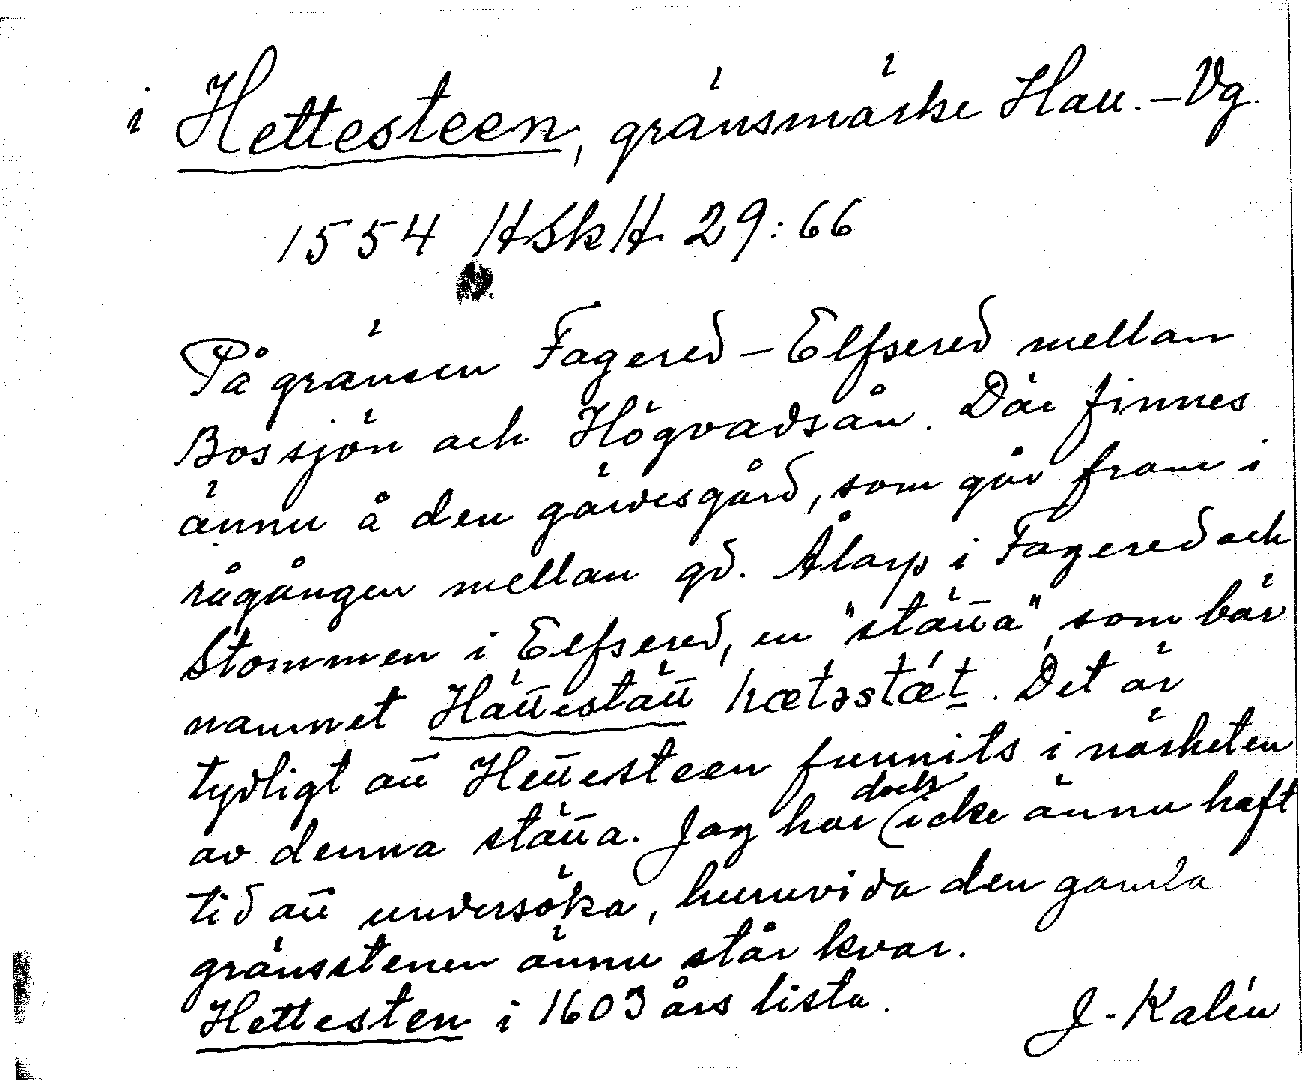 i Hettesteen, gränsmärke Hall.–Vg.
1554 HSkH 29:66
På gränsen Fagered – Elfsered mellan
Bossjön och Högvadsån. Där finnes
ännu å den gärdesgård, som går fram i
rågången mellan gd. Ålarp i Fagered och
Stommen i Elfsered, en "stätta", som bär
namnet Hättestätt hætəstæt. Det är
tydligt att Hettesteen funnits i närheten
av denna stätta. Jag har dock icke ännu haft
tid att undersöka, huruvida den gamla
gränsstenen ännu står kvar.
Hettesten i 1603 års lista.
J. Kalén